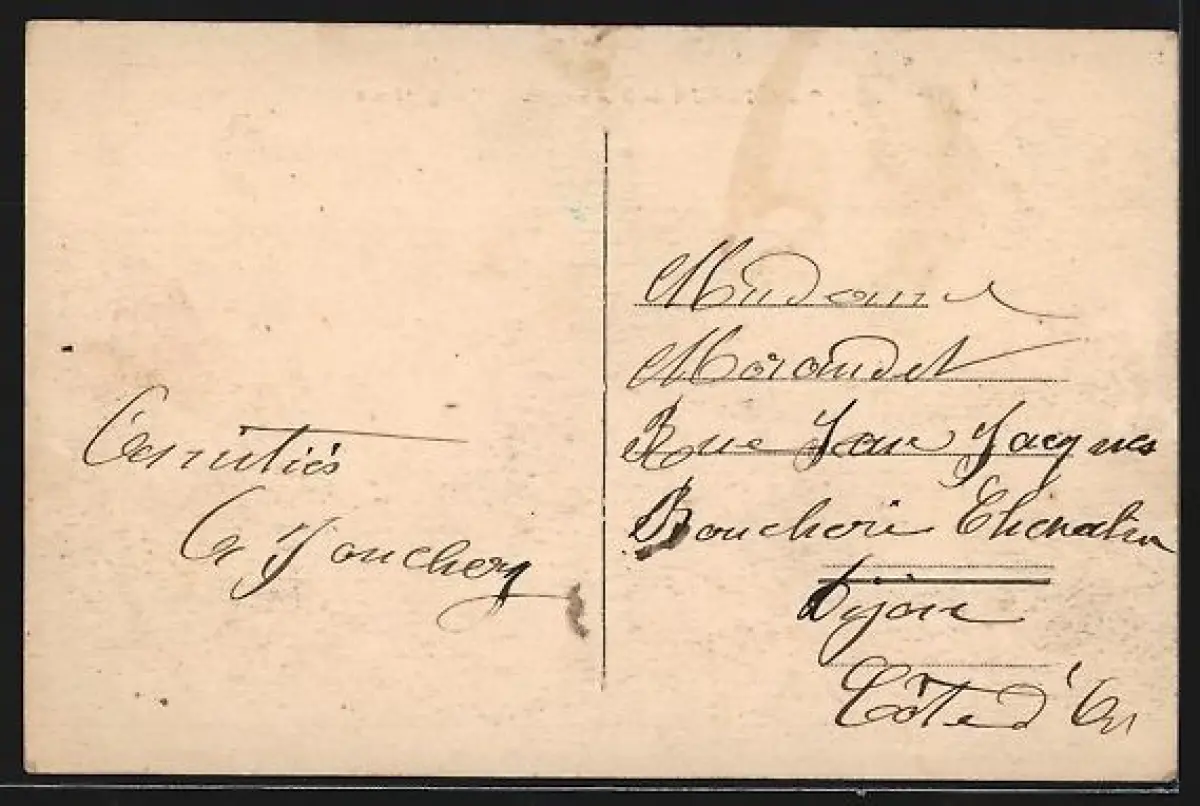 Amitiés
G Jouchery
Madame
Morandet
Rue Jean Jacques
Boucherie Chevalin
Dijon
Côte d'Or